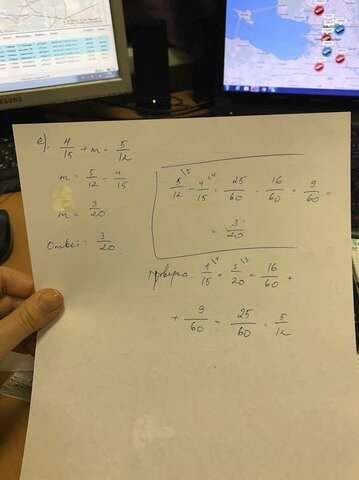 е). 4/15 + m = 5/12
m = 5/12 - 4/15
m = 3/20
Ответ: 3/20
5/12 \5 - 4/15 \4 = 25/60 - 16/60 = 9/60 =
= 3/20
проверка 4/15 \4 + 3/20 \3 = 16/60 +
+ 9/60 = 25/60 = 5/12
SAMSUNG